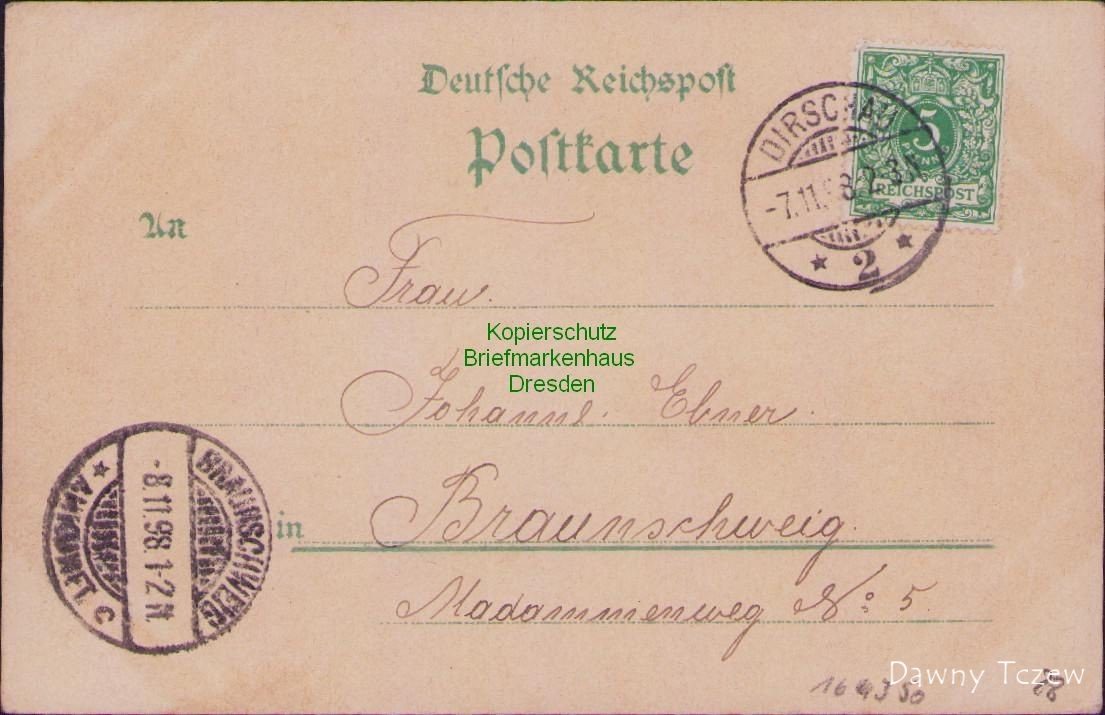 Deutsche Reichspost
Postkarte
DIRSCHAU
-7.11.98.2-3N
* 2 *
5
PFENNIG
REICHSPOST
An
Frau.
Kopierschutz
Briefmarkenhaus
Dresden
Johanne. Ebner.
BRAUNSCHWEIG
-8.11.98.1-2N.
* ANKUNFT c
in Braunschweig.
Madammenweg No: 5.
Dawny Tczew